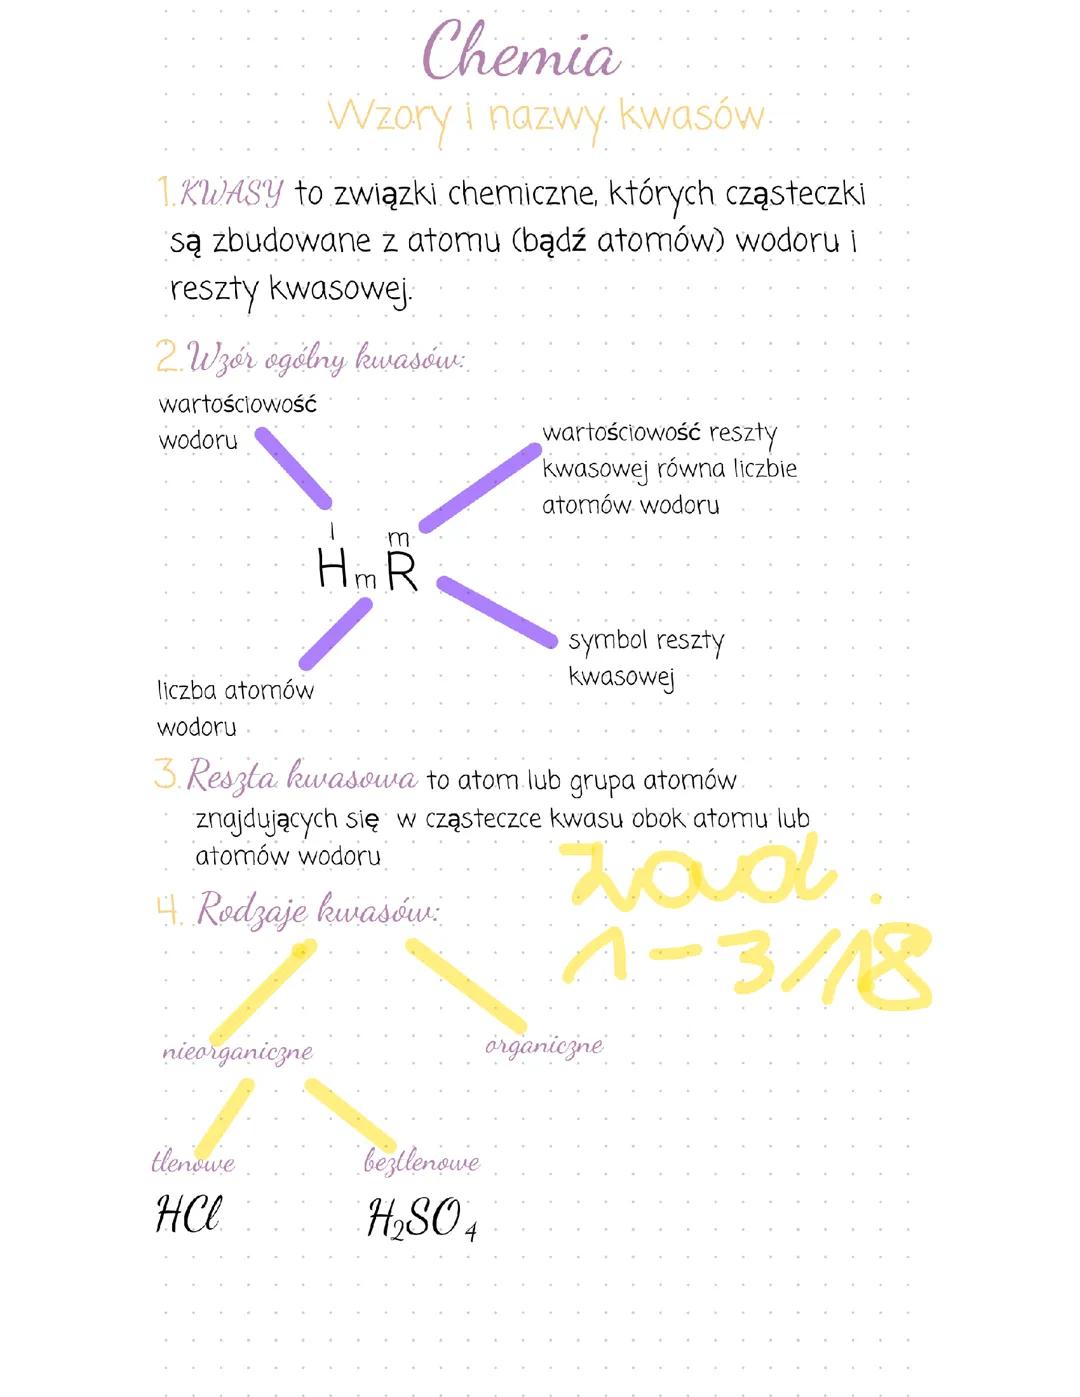 Chemia
Wzory i nazwy kwasów
1. KWASY to związki chemiczne, których cząsteczki
są zbudowane z atomu (bądź atomów) wodoru i
reszty kwasowej.
2. Wzór ogólny kwasów:
wartościowość
wodoru
wartościowość reszty
kwasowej równa liczbie
atomów wodoru
I m
HmR
symbol reszty
kwasowej
liczba atomów
wodoru
3. Reszta kwasowa to atom lub grupa atomów
znajdujących się w cząsteczce kwasu obok atomu lub
atomów wodoru
zad.
1-3/18
4. Rodzaje kwasów:
nieorganiczne organiczne
tlenowe beztlenowe
HCl H₂SO₄